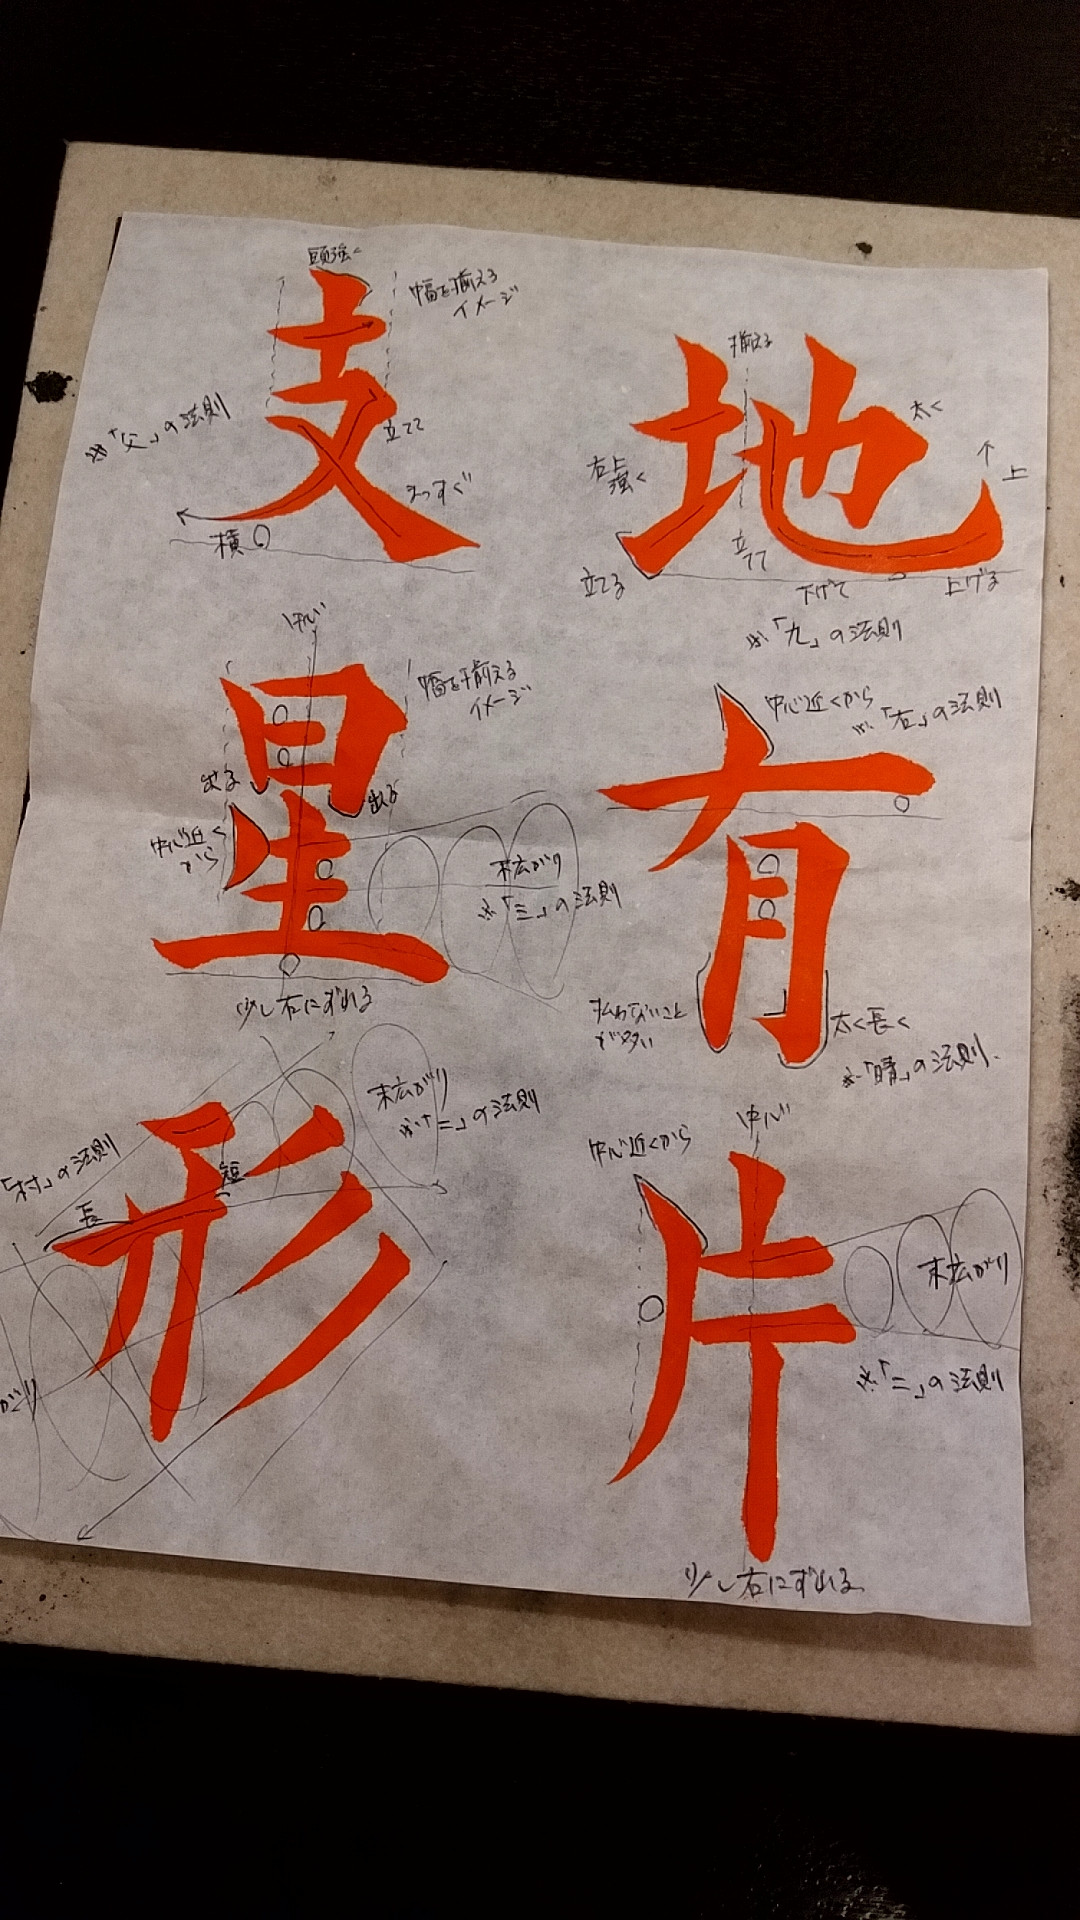 地
揃える
太く
右上
強く
上
立てる
立てて
下げて
上げる
※「九」の法則
有
中心近くから
※「右」の法則
払わないこと
が多い
太く長く
※「晴」の法則
片
中心
中心近くから
末広がり
※「二」の法則
少し右にずれる
支
頭強く
幅を揃える
イメージ
※「父」の法則
立てて
まっすぐ
横
星
中心
幅を揃える
イメージ
出る
出る
中心近く
から
末広がり
※「三」の法則
少し右にずれる
形
末広がり
※「二」の法則
「村」の法則
長
短
がり